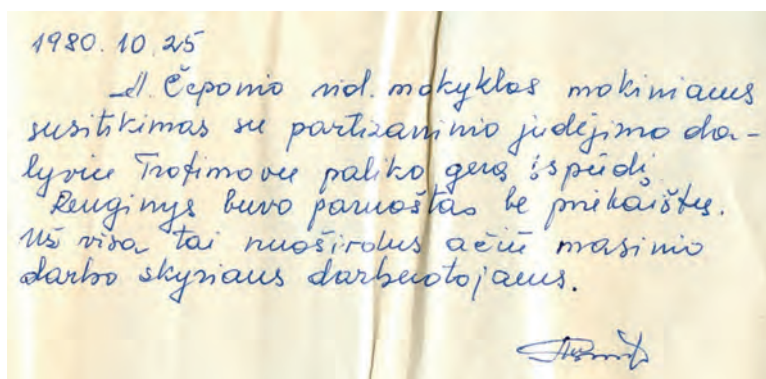 1980.10.25
A. Čeponio vid. mokyklos mokiniams
susitikimas su partizaninio judėjimo da-
lyviu Trofimovu paliko gerą įspūdį.
Renginys buvo paruoštas be priekaištų.
Už visa tai nuoširdus ačiū masinio
darbo skyriaus darbuotojams.